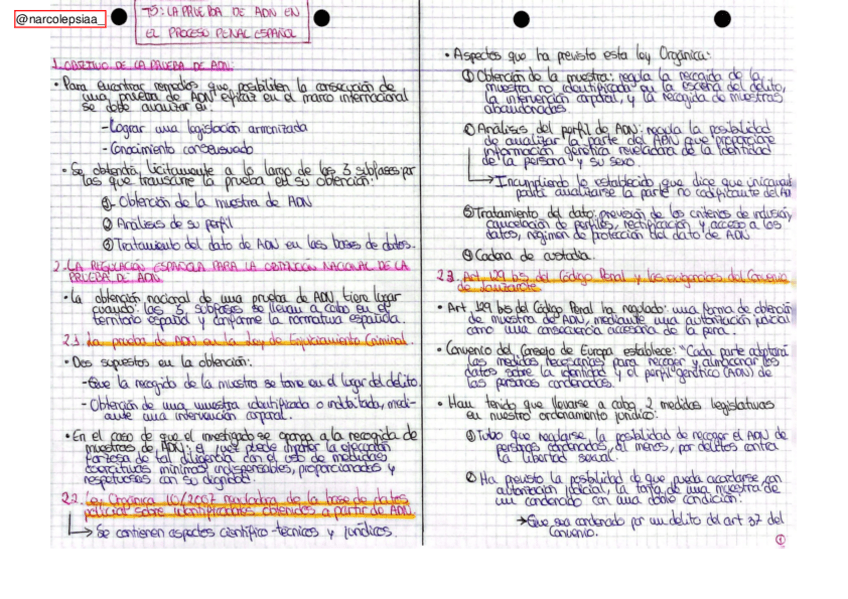 @narcolepsiaa_
T5: LA PRUEBA DE ADN EN
EL PROCESO PENAL ESPAÑOL
1. OBJETIVO DE LA PRUEBA DE ADN:
• Para encontrar remedios que posibiliten la consecución de
una prueba de ADN eficaz en el marco internacional
se debe avanzar en:
- Lograr una legislación armonizada
- Conocimiento consensuado
• Se obtendrá, lícitamente a lo largo de las 3 subfases por
las que transcurre la prueba en su obtención:
① Obtención de la muestra de ADN
② Análisis de su perfil
③ Tratamiento del dato de ADN en las bases de datos.
2. LA REGULACIÓN ESPAÑOLA PARA LA OBTENCIÓN NACIONAL DE LA
PRUEBA DE ADN:
• La obtención nacional de una prueba de ADN, tiene lugar
cuando: las 3 subfases se llevan a cabo en el
territorio español y conforme la normativa española.
2.1. La prueba de ADN en la Ley de Enjuiciamiento Criminal.
• Dos supuestos en la obtención:
- Que la recogida de la muestra se tome en el lugar del delito.
- Obtención de una muestra identificada o indubitada, medi-
ante una intervención corporal.
• En el caso de que el investigado se oponga a la recogida de
muestras de ADN: el juez puede imponer la ejecución
forzosa de tal diligencia con el uso de medidas
coercitivas mínimas indispensables, proporcionadas y
respetuosas con su dignidad.
2.2. Ley Orgánica 10/2007 reguladora de la base de datos
policial sobre identificadores obtenidos a partir de ADN.
→ Se contienen aspectos científico-técnicos y jurídicos.
• Aspectos que ha previsto esta ley Orgánica:
① Obtención de la muestra: regula la recogida de la
muestra no identificada en la escena del delito,
la intervención corporal, y la recogida de muestras
abandonadas.
② Análisis del perfil de ADN: regula la posibilidad
de analizar la parte del ADN que proporcione
información genética reveladora de la identidad
de la persona y su sexo.
→ Incumpliendo lo establecido, que dice que únicamente
podrá analizarse la parte no codificante del AD
③ Tratamiento del dato: previsión de los criterios de inclusión,
cancelación de perfiles, rectificación y acceso a los
datos, régimen de protección del dato de ADN
④ Cadena de custodia.
2.3. Art 129 bis del Código Penal y las exigencias del Convenio
de Lanzarote.
• Art 129 bis del Código Penal ha regulado: una forma de obtención
de muestra de ADN, mediante una autorización judicial
como una consecuencia accesoria de la pena.
• Convenio del Consejo de Europa establece: "Cada parte adoptará
las medidas necesarias para recoger y almacenar los
datos sobre la identidad y el perfil genético (ADN) de
las personas condenadas.
• Han tenido que llevarse a cabo 2 medidas legislativas
en nuestro ordenamiento jurídico:
① Tuvo que regularse la posibilidad de recoger el ADN de
personas condenadas, al menos, por delitos contra
la libertad sexual.
② Ha previsto la posibilidad de que pueda acordarse con
autorización judicial, la toma de una muestra de
un condenado con una doble condición:
→ Que sea condenado por un delito del art 37 del
Convenio.
①